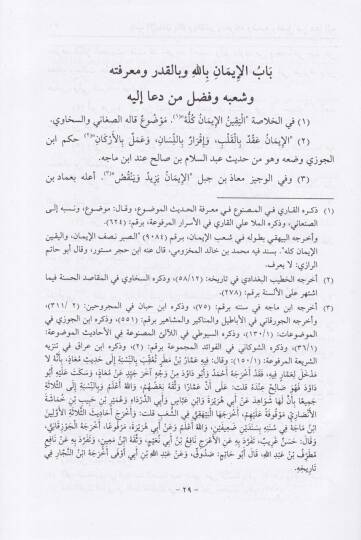 بَابُ الإِيمَانِ بِاللهِ وبالقدر ومعرفته
وشعبه وفضل من دعا إليه
(١) في الخلاصة "الْيَقِينُ الإِيمَانُ كُلُّهُ"(١). مَوْضُوعٌ قاله الصغاني والسخاوي.
(٢) "الإِيمَانُ عَقْدٌ بِالْقَلْبِ، وَإِقْرَارٌ بِاللِّسَانِ، وَعَمَلٌ بِالأَرْكَانِ"(٢) حكم ابن
الجوزي وضعه وهو من حديث عبد السلام بن صالح عند ابن ماجه.
(٣) وفي الوجيز معاذ بن جبل "الإِيمَانُ يَزِيدُ وَيَنْقُصُ"(٣). أعله بعماد بن
(١) ذكره القاري في المصنوع في معرفة الحديث الموضوع، وقال: موضوع، ونسبه إلى
الصنعاني، وذكره الملا علي القاري في الأسرار المرفوعة، برقم: (٦٢٤).
وأخرجه البيهقي بطوله في شعب الإيمان، برقم (٩٠٨٤) "الصبر نصف الإيمان، واليقين
الإيمان كله". بسند فيه محمد بن خالد المخزومي، قال عنه ابن حجر مستور، وقال أبو حاتم
الرازي: لا يعرف.
(٢) أخرجه الخطيب البغدادي في تاريخه: (٥٨/١٢)، وذكره السخاوي في المقاصد الحسنة فيما
اشتهر على الألسنة برقم: (٢٧٨).
(٣) أخرجه ابن ماجه في سننه برقم: (٧٥)، وذكره ابن حبان في المجروحين: (٢ /٣١١)،
وأخرجه الجورقاني في الأباطيل والمناكير والمشاهير برقم: (٥٥١)، وذكره ابن الجوزي في
الموضوعات: (١٣٠/١)، وذكره السيوطي في اللآلئ المصنوعة في الأحاديث الموضوعة:
(٣٦/١)، وذكره الشوكاني في الفوائد المجموعة برقم: (٢)، وذكره ابن عراق في تنزيه
الشريعة المرفوعة: (١٥٠/١) وقال: فيه عمار بْنُ مَطَرٍ تُعُقِّبَ بِالنِّسْبَةِ إِلَى حَدِيثِ مُعَاذٍ، بِأَنَّهُ لا
مَدْخَلَ لِعَمَّارٍ فِيهِ، فَقَدْ أَخْرَجَهُ أَحْمَدُ وَأَبُو دَاوُدَ مِنْ وَجْهٍ آخَرَ جَيِّدٍ عَنْ مُعَاذٍ، وَسَكَتَ عَلَيْهِ أَبُو
دَاوُدَ فَهُوَ صَالِحٌ عِنْدَهُ قلت: عَلَى أَنَّ عَمَّارًا وَثَّقَهُ بَعْضُهُمْ، وَاللهُ أَعْلَمُ وَبِالنِّسْبَةِ إِلَى الثَّلاثَةِ
جَمِيعًا بِأَنَّ لَهَا شَوَاهِدَ عَنْ أَبِي هُرَيْرَةَ وَابْنِ عَبَّاسٍ وَأَبِي الدَّرْدَاءِ وَعُمَيْرِ بْنِ حَبِيبِ بْنِ خُمَاشَةَ
الأَنْصَارِيِّ مَوْقُوفَةً عَلَيْهِمْ، أَخْرَجَهَا الْبَيْهَقِيُّ فِي الشُّعَبِ قلت: وَأَخْرَجَ أَحَادِيثَ الثَّلاثَةِ الأَوَّلِينَ
ابْنُ مَاجَهْ فِي سُنَنِهِ بِسَنَدَيْنِ ضَعِيفَيْنِ، وَاللهُ أَعْلَمُ وَعَنْ أَبِي هُرَيْرَةَ، مَرْفُوعًا، أَخْرَجَهُ الْجَوْزَقَانِيُّ،
وَقَالَ: حَسَنٌ غَرِيبٌ، تَفَرَّدَ بِهِ عَنِ الأَعْرَجِ نَافِعُ بْنُ أَبِي نُعَيْمٍ، وَثَّقَهُ ابْنُ مَعِينٍ، وَتَفَرَّدَ بِهِ عَنْ نَافِعٍ
مُطَرِّفُ بْنُ عَبْدِ اللهِ، قَالَ أَبُو حَاتِمٍ: صَدُوقٌ، وَعَنْ عَبْدِ اللهِ بْنِ أَبِي أَوْفَى أَخْرَجَهُ ابْنُ النَّجَّارِ فِي
تَارِيخِهِ.
- ٢٩ -